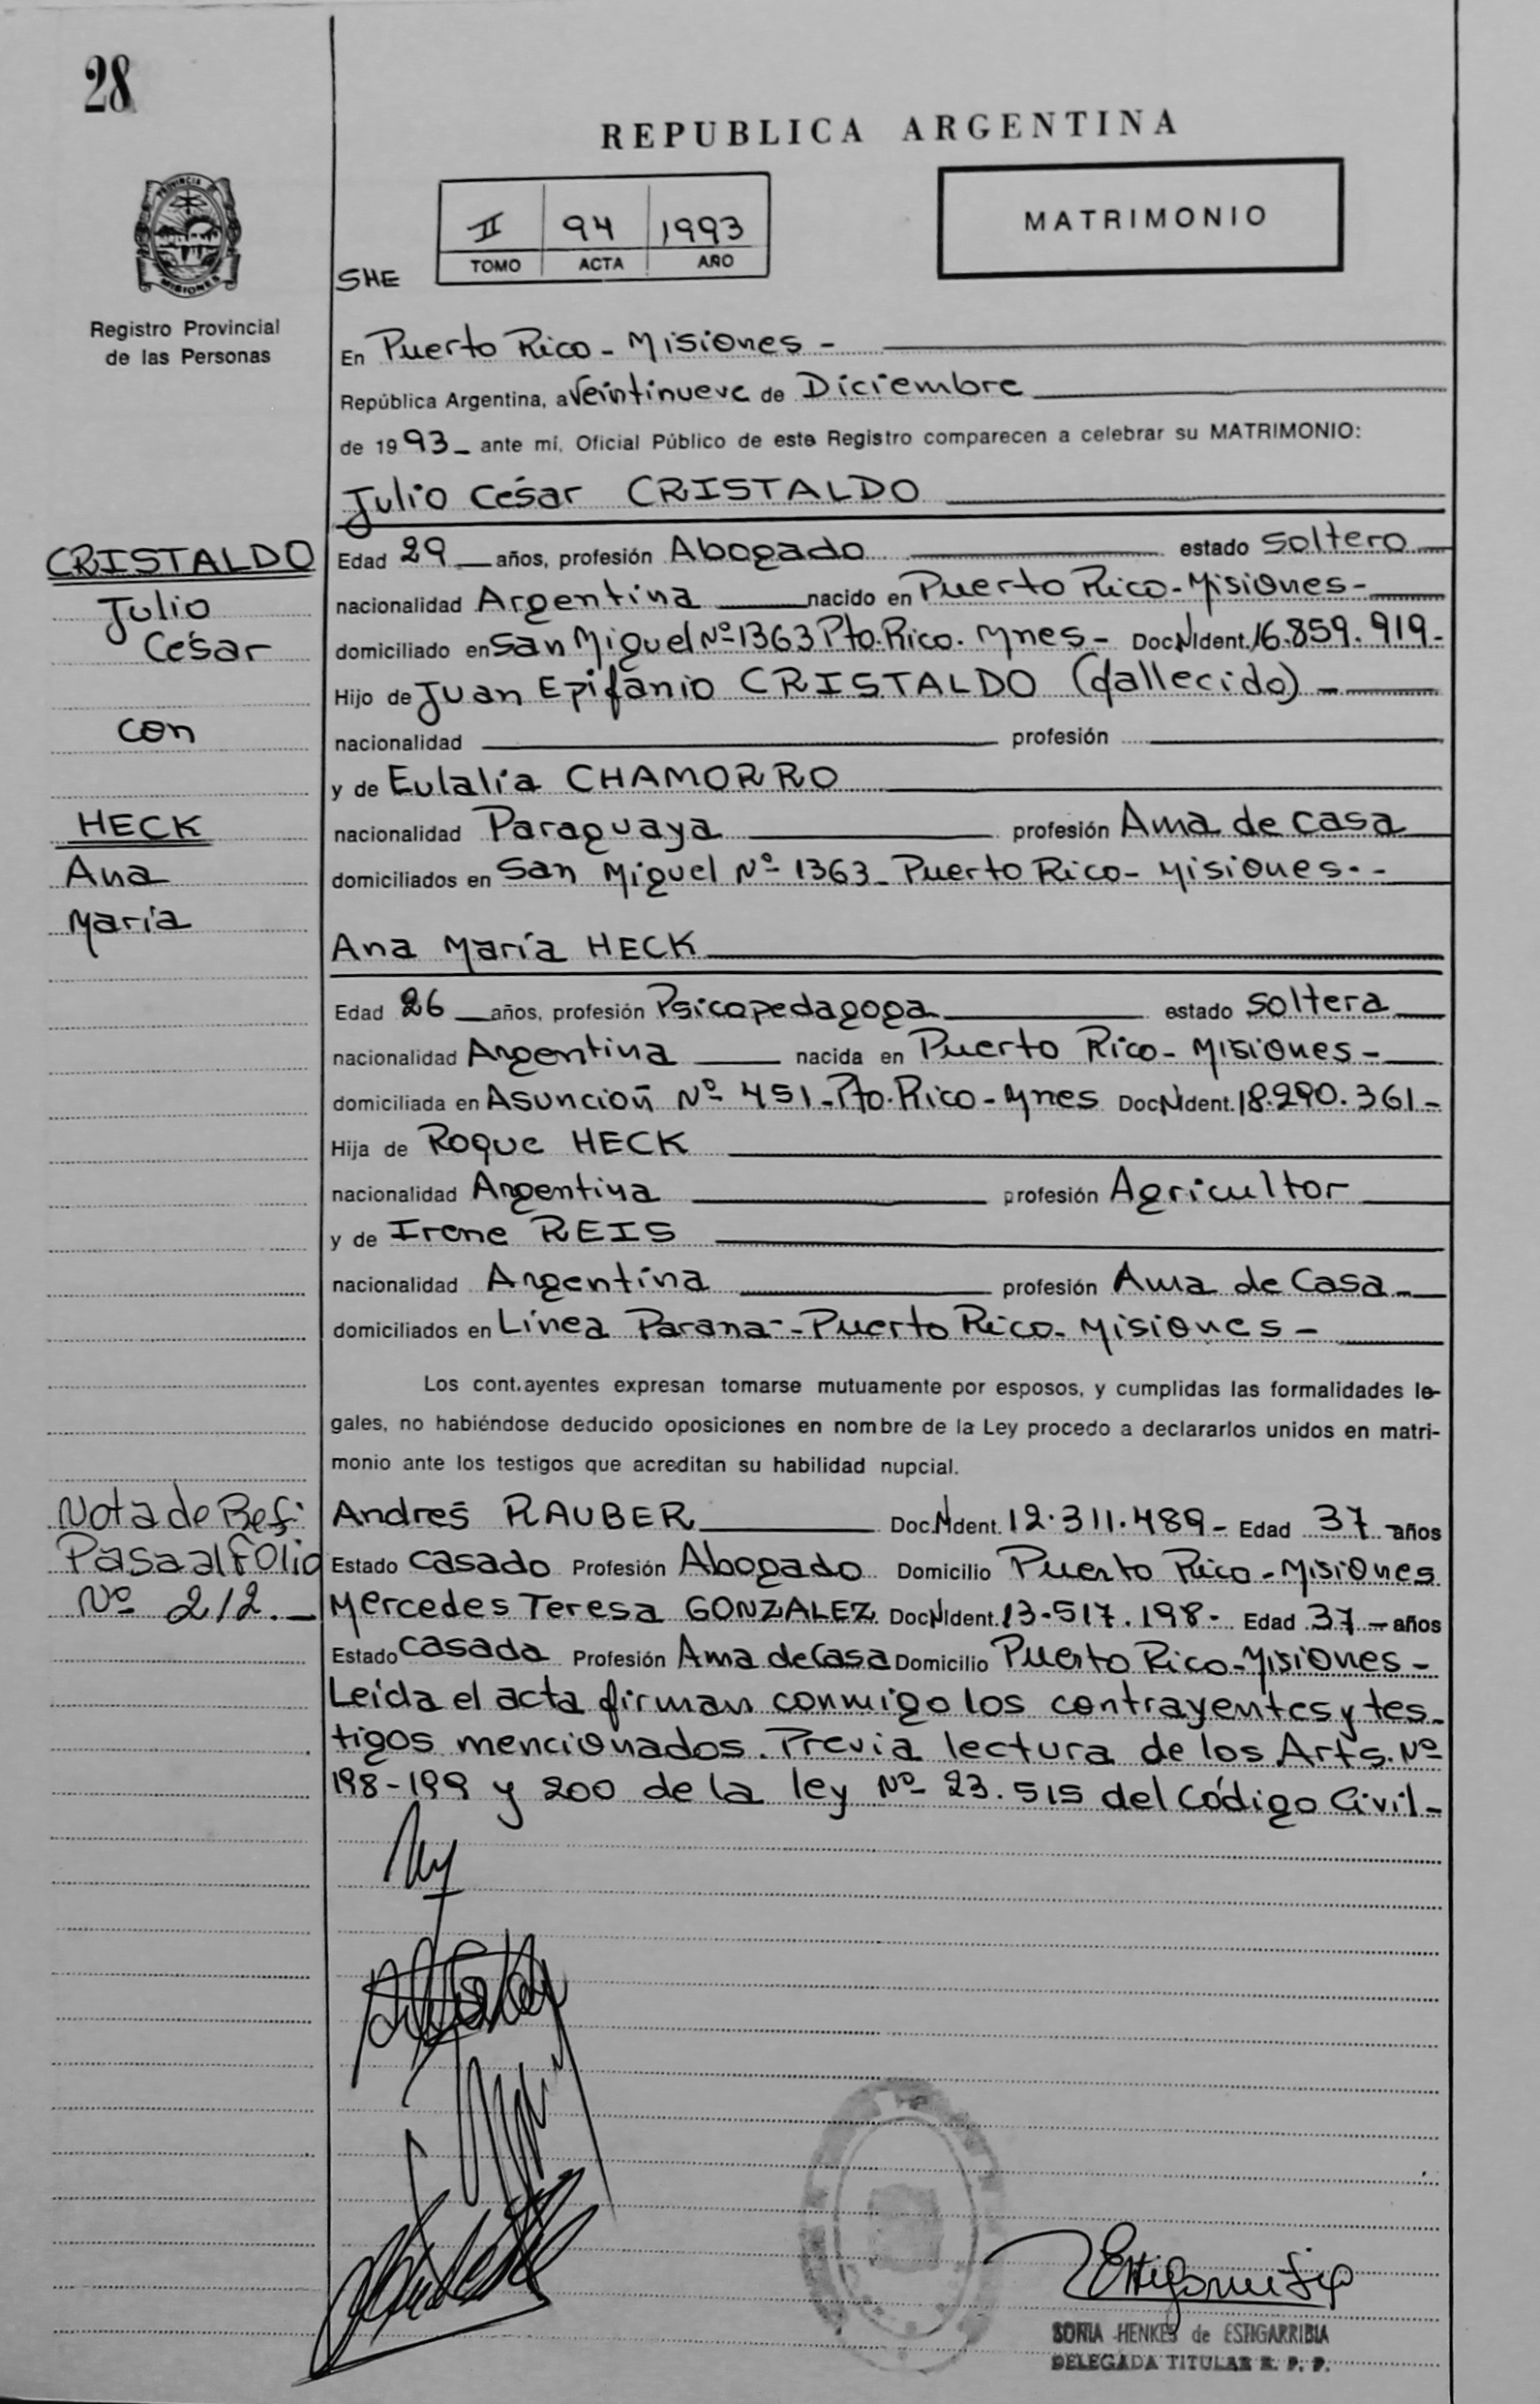 28
REPUBLICA ARGENTINA
PROVINCIA DE
MISIONES
Registro Provincial
de las Personas
II 94 1993
TOMO ACTA AÑO
MATRIMONIO
SHE
En Puerto Rico - Misiones -
República Argentina, a Veintinueve de Diciembre
de 1993 - ante mí, Oficial Público de este Registro comparecen a celebrar su MATRIMONIO:
Julio César CRISTALDO
CRISTALDO
Julio
César
con
HECK
Ana
María
Edad 29 años, profesión Abogado estado Soltero
nacionalidad Argentina nacido en Puerto Rico - Misiones -
domiciliado en San Miguel Nº 1363 Pto. Rico. Mnes - Doc N Ident. 16.859.919 -
Hijo de Juan Epifanio CRISTALDO (fallecido) -
nacionalidad profesión
y de Eulalia CHAMORRO
nacionalidad Paraguaya profesión Ama de casa
domiciliados en San Miguel Nº 1363 - Puerto Rico - Misiones. -
Ana María HECK
Edad 26 años, profesión Psicopedagoga estado Soltera
nacionalidad Argentina nacida en Puerto Rico - Misiones -
domiciliada en Asunción Nº 451 - Pto. Rico - Mnes Doc N Ident. 18.290.361 -
Hija de Roque HECK
nacionalidad Argentina profesión Agricultor
y de Irene REIS
nacionalidad Argentina profesión Ama de Casa -
domiciliados en Línea Paraná - Puerto Rico - Misiones -
Los cont.ayentes expresan tomarse mutuamente por esposos, y cumplidas las formalidades le-
gales, no habiéndose deducido oposiciones en nombre de la Ley procedo a declararlos unidos en matri-
monio ante los testigos que acreditan su habilidad nupcial.
Nota de Ref:
Pasa al folio
Nº 212. -
Andrés RAUBER Doc. N Ident. 12.311.489 - Edad 37 años
Estado Casado Profesión Abogado Domicilio Puerto Rico - Misiones
Mercedes Teresa GONZALEZ Doc N Ident. 13.517.198 - Edad 37 - años
Estado Casada Profesión Ama de Casa Domicilio Puerto Rico - Misiones -
Leída el acta firman conmigo los contrayentes y tes-
tigos mencionados. Previa lectura de los Arts. Nº
198-199 y 200 de la ley Nº 23.515 del Código Civil -
SONIA HENKES de ESTIGARRIBIA
DELEGADA TITULAR R. P. P.